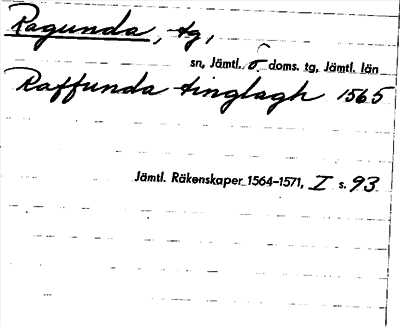 Ragunda, tg,
sn, Jämtl. ö. doms. tg, Jämtl. län
Raffunda tinglagh 1565
Jämtl. Räkenskaper 1564-1571, I s. 93